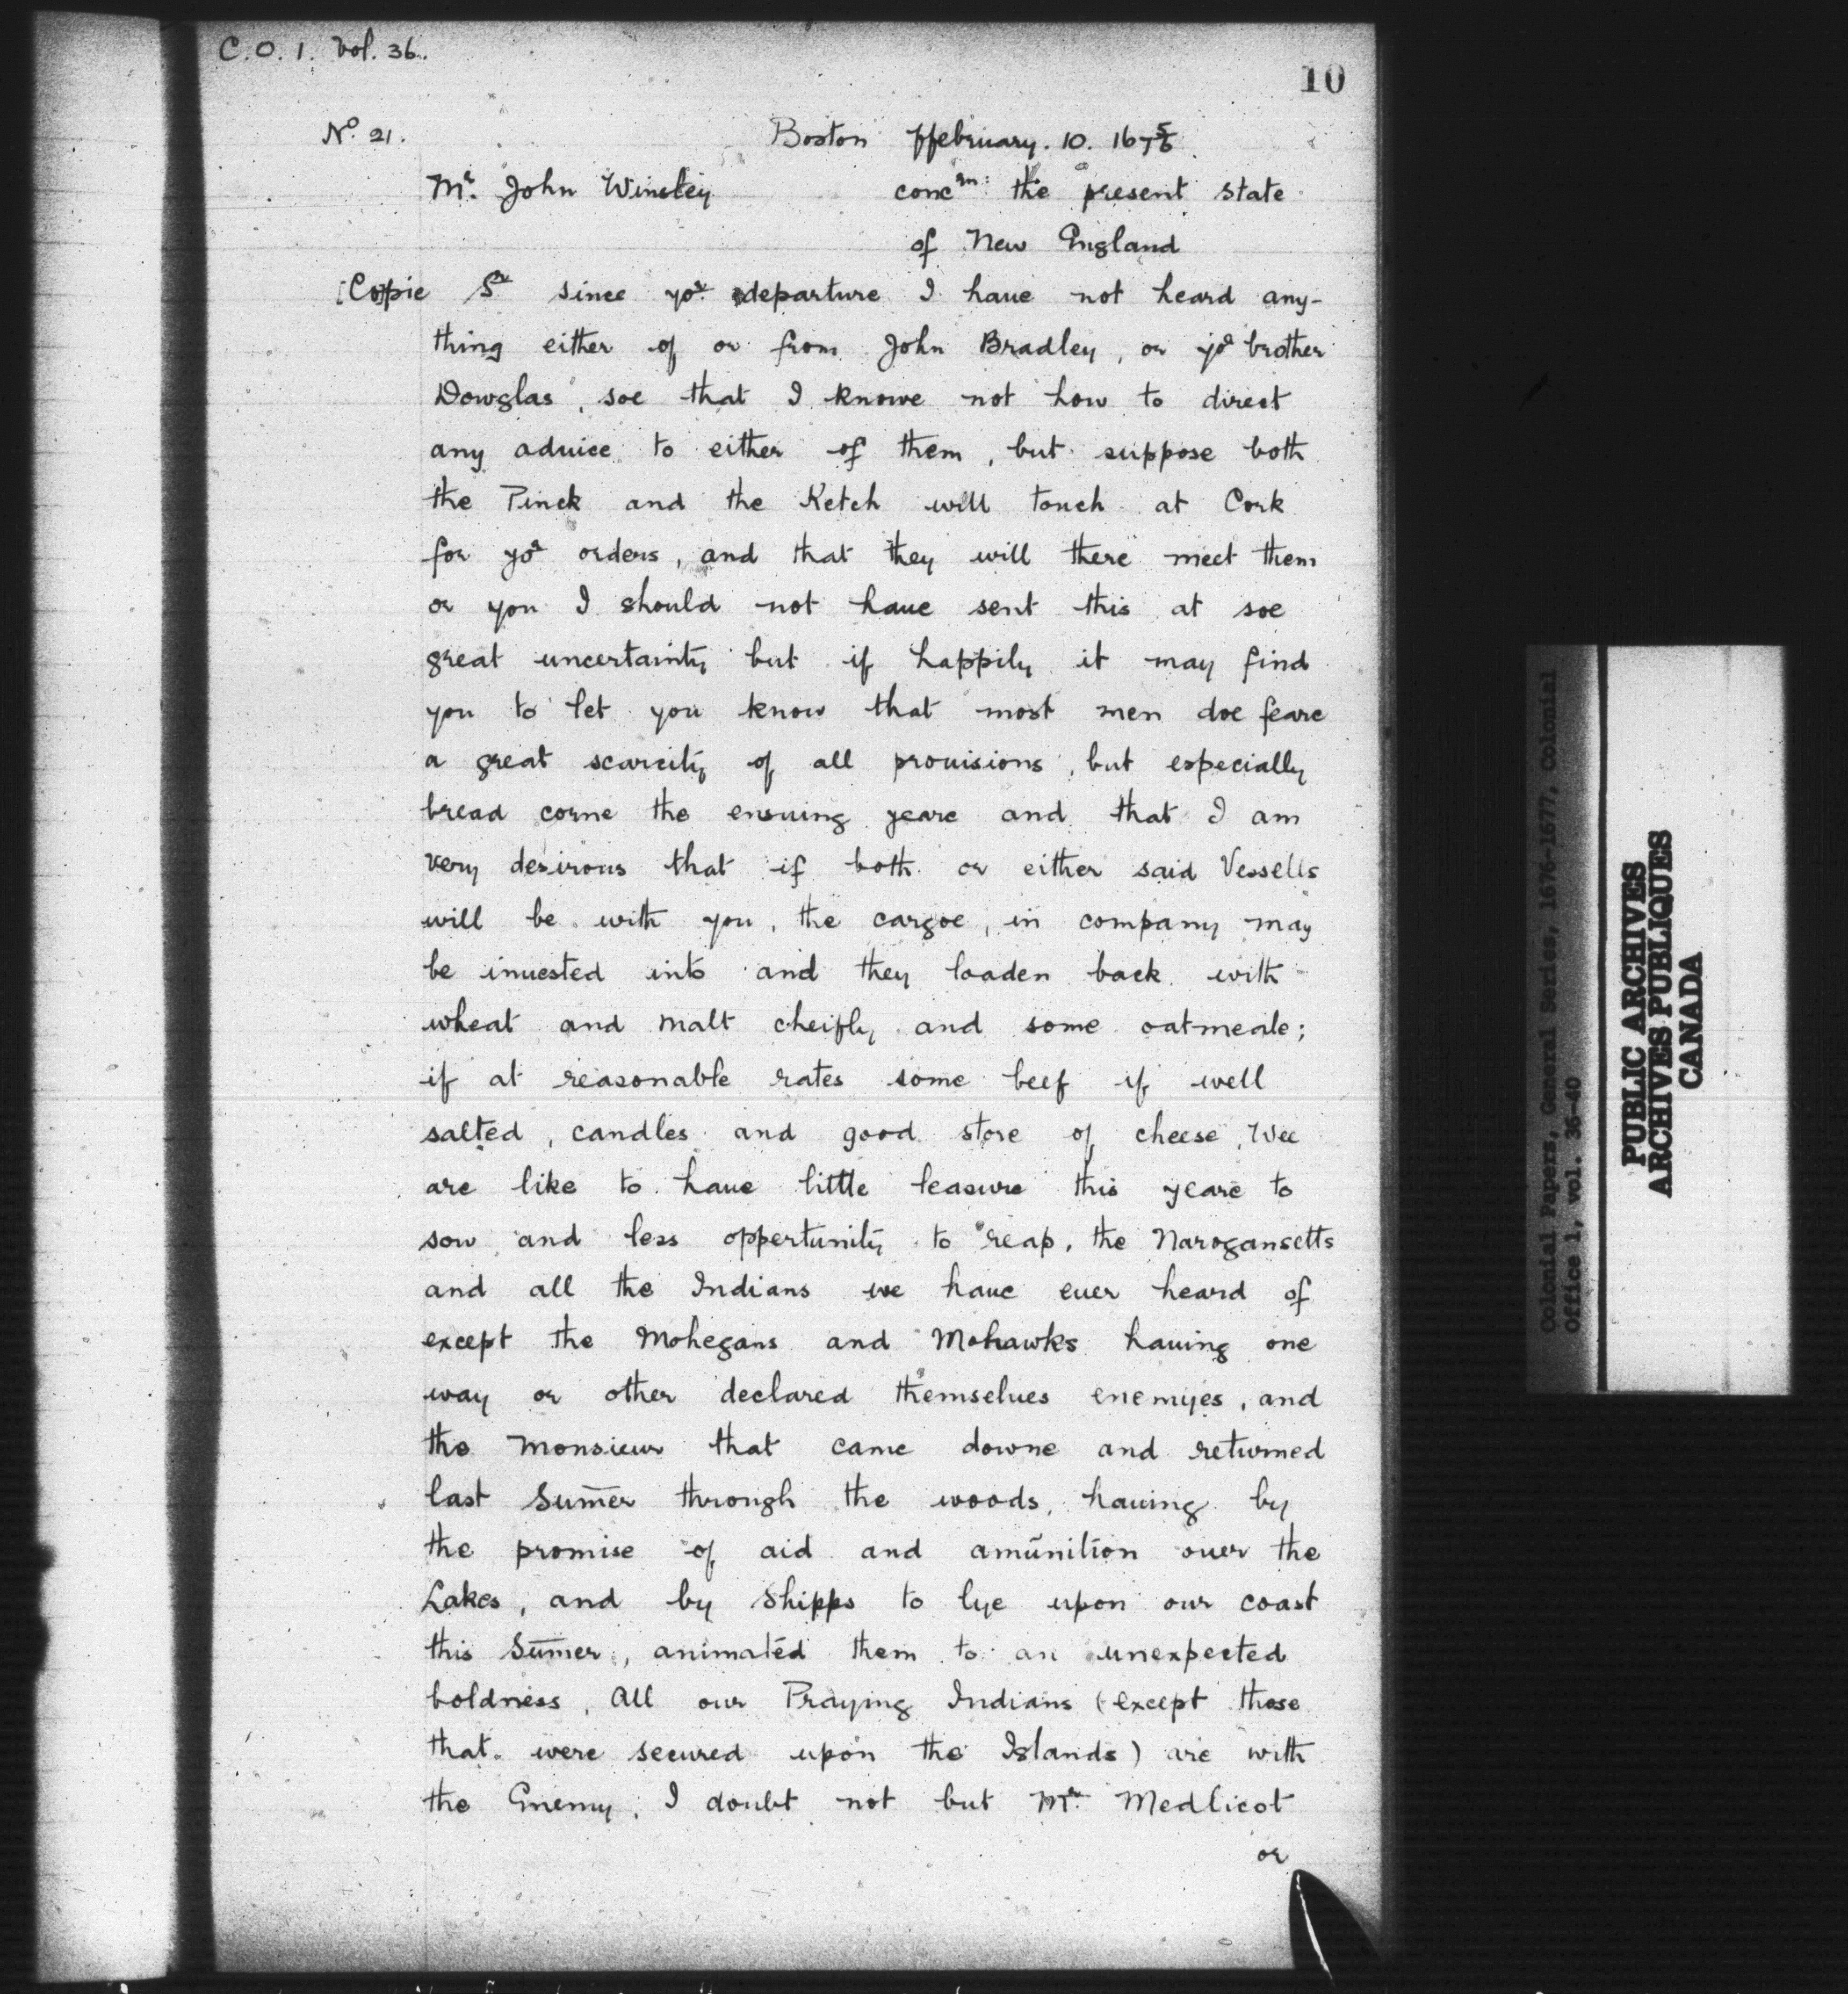 C.O. 1. Vol. 36.
10
No. 21.
Boston ffebruary. 10. 167 5/6
Mr. John Winsley
concrn: the present state
of New England
[Copie Sr since yor departure I haue not heard any-
thing either of or from John Bradley, or yor brother
Dowglas, soe that I knowe not how to direct
any aduice to either of them, but suppose both
the Pinck and the Ketch will touch at Cork
for yor orders, and that they will there meet them
or you I should not haue sent this at soe
great uncertainty but if happily it may find
you to let you know that most men doe feare
a great scarcity of all prouisions, but especially
bread corne the ensuing yeare and that I am
very desirous that if both or either said Vessells
will be with you, the cargoe, in company may
be inuested into and they loaden back with
wheat and malt cheifly and some oatmeale;
if at reasonable rates some beef if well
salted, candles and good store of cheese, Wee
are like to haue little leasure this yeare to
sow and less oppertunity to reap, the Narogansetts
and all the Indians we haue euer heard of
except the Mohegans and Mohawks hauing one
way or other declared themselues enemyes, and
the Monsieur that came downe and returned
last Sum̄er through the woods, hauing by
the promise of aid and amūnition ouer the
Lakes, and by Shipps to lye upon our coast
this Sum̄er, animated them to an unexpected
boldness, All our Praying Indians (except those
that were secured upon the Islands) are with
the Enemy, I doubt not but Mr. Medlicot
or
Colonial Papers, General Series, 1676-1677, Colonial
Office 1, vol. 36-40
PUBLIC ARCHIVES
ARCHIVES PUBLIQUES
CANADA